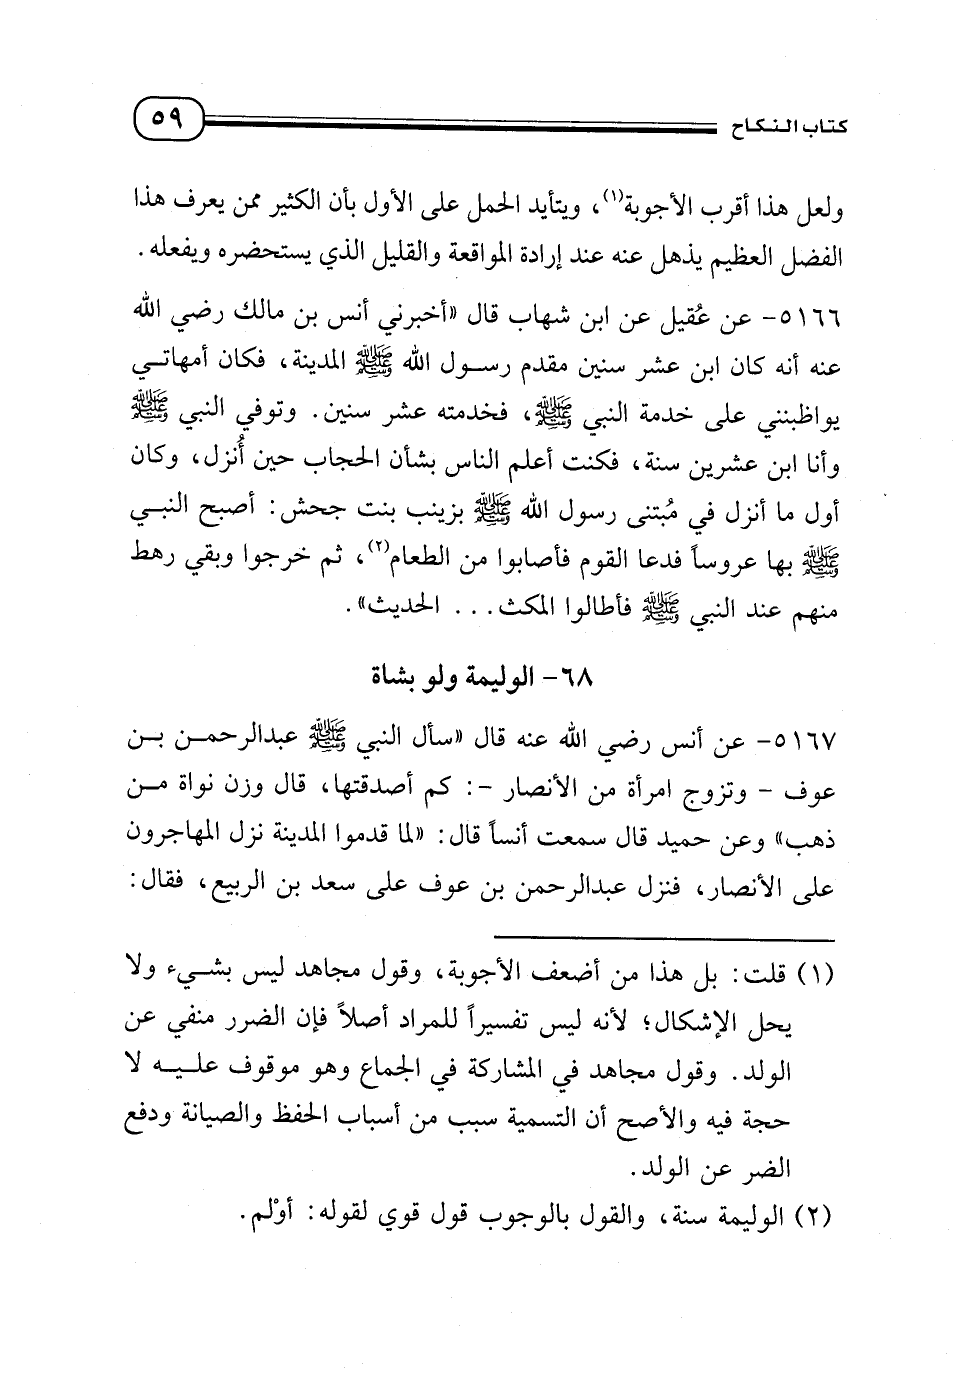 كتاب النكاح ٥٩
ولعل هذا أقرب الأجوبة(١)، ويتأيد الحمل على الأول بأن الكثير ممن يعرف هذا
الفضل العظيم يذهل عنه عند إرادة المواقعة والقليل الذي يستحضره ويفعله.
٥١٦٦- عن عُقيل عن ابن شهاب قال «أخبرني أنس بن مالك رضي الله
عنه أنه كان ابن عشر سنين مقدم رسول الله ﷺ المدينة، فكان أمهاتي
يواظبنني على خدمة النبي ﷺ، فخدمته عشر سنين. وتوفي النبي ﷺ
وأنا ابن عشرين سنة، فكنت أعلم الناس بشأن الحجاب حين أُنزل، وكان
أول ما أنزل في مُبتنى رسول الله ﷺ بزينب بنت جحش: أصبح النبي
ﷺ بها عروساً فدعا القوم فأصابوا من الطعام(٢)، ثم خرجوا وبقي رهط
منهم عند النبي ﷺ فأطالوا المكث... الحديث».
٦٨- الوليمة ولو بشاة
٥١٦٧- عن أنس رضي الله عنه قال «سأل النبي ﷺ عبدالرحمن بن
عوف - وتزوج امرأة من الأنصار -: كم أصدقتها، قال وزن نواة من
ذهب» وعن حميد قال سمعت أنساً قال: «لما قدموا المدينة نزل المهاجرون
على الأنصار، فنزل عبدالرحمن بن عوف على سعد بن الربيع، فقال:
(١) قلت: بل هذا من أضعف الأجوبة، وقول مجاهد ليس بشيء ولا
يحل الإشكال؛ لأنه ليس تفسيراً للمراد أصلاً فإن الضرر منفي عن
الولد. وقول مجاهد في المشاركة في الجماع وهو موقوف عليه لا
حجة فيه والأصح أن التسمية سبب من أسباب الحفظ والصيانة ودفع
الضر عن الولد.
(٢) الوليمة سنة، والقول بالوجوب قول قوي لقوله: أوْلم.